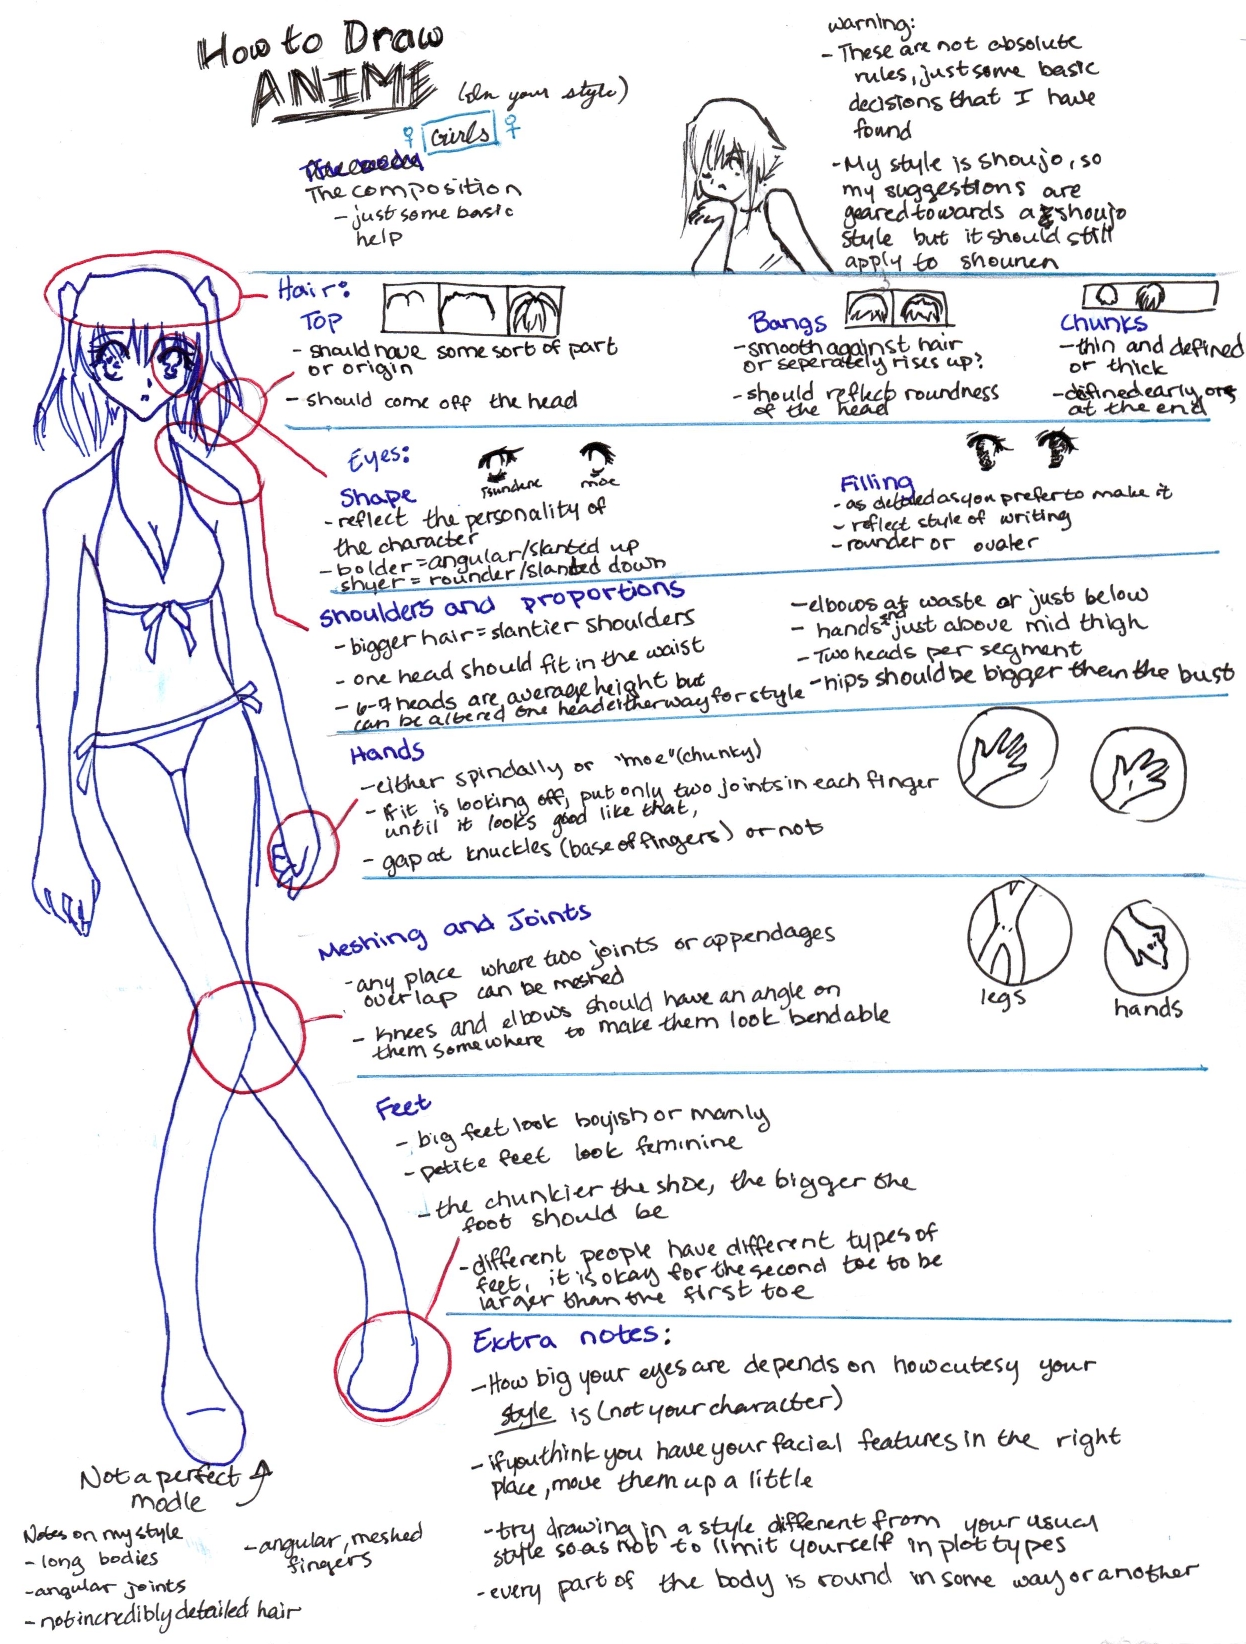 How to Draw
ANIME
(In your style)
Girls
The composition
- just some basic
help
warning:
- These are not absolute
rules, just some basic
decisions that I have
found
- My style is shoujo, so
my suggestions are
geared towards a shoujo
style but it should still
apply to shounen
Hair:
Top
- should have some sort of part
or origin
- should come off the head
Bangs
- smooth against hair
or seperately rises up?
- should reflect roundness
of the head
Chunks
- thin and defined
or thick
- defined early or
at the end
Eyes:
Tsundere
moe
Shape
- reflect the personality of
the character
- bolder = angular/slanted up
shyer = rounder/slanted down
Filling
- as detailed as you prefer to make it
- reflect style of writing
- rounder or ovaler
Shoulders and proportions
- bigger hair = slantier shoulders
- one head should fit in the waist
- 6-7 heads are average height but
can be altered one head either way for style
- elbows at waste or just below
- hands end just above mid thigh
- Two heads per segment
- hips should be bigger than the bust
Hands
- either spindally or "moe" (chunky)
- If it is looking off, put only two joints in each finger
until it looks good like that,
- gap at knuckles (base of fingers) or not
Meshing and Joints
- any place where two joints or appendages
overlap can be meshed
- Knees and elbows should have an angle on
them somewhere to make them look bendable
legs
hands
Feet
- big feet look boyish or manly
- petite feet look feminine
- the chunkier the shoe, the bigger the
foot should be
- different people have different types of
feet, it is okay for the second toe to be
larger than the first toe
Extra notes:
- How big your eyes are depends on how cutesy your
style is (not your character)
- if you think you have your facial features in the right
place, move them up a little
- try drawing in a style different from your usual
style so as not to limit yourself in plot types
- every part of the body is round in some way or another
Not a perfect
modle
Notes on my style
- long bodies
- angular joints
- not incredibly detailed hair
- angular, meshed
fingers